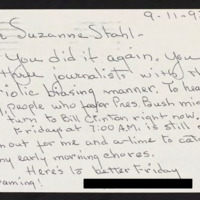 9-11-9
Suzanne Stahl-
You did it again. You
those journalists with th
riolic biasing manner. To hea
people who favor Pres. Bush mi
turn to Bill Clinton right now.
Fridays at 7:00 A.M. is still
out for me and a time to cat
my early morning chores.
Here's to better Friday
aming!